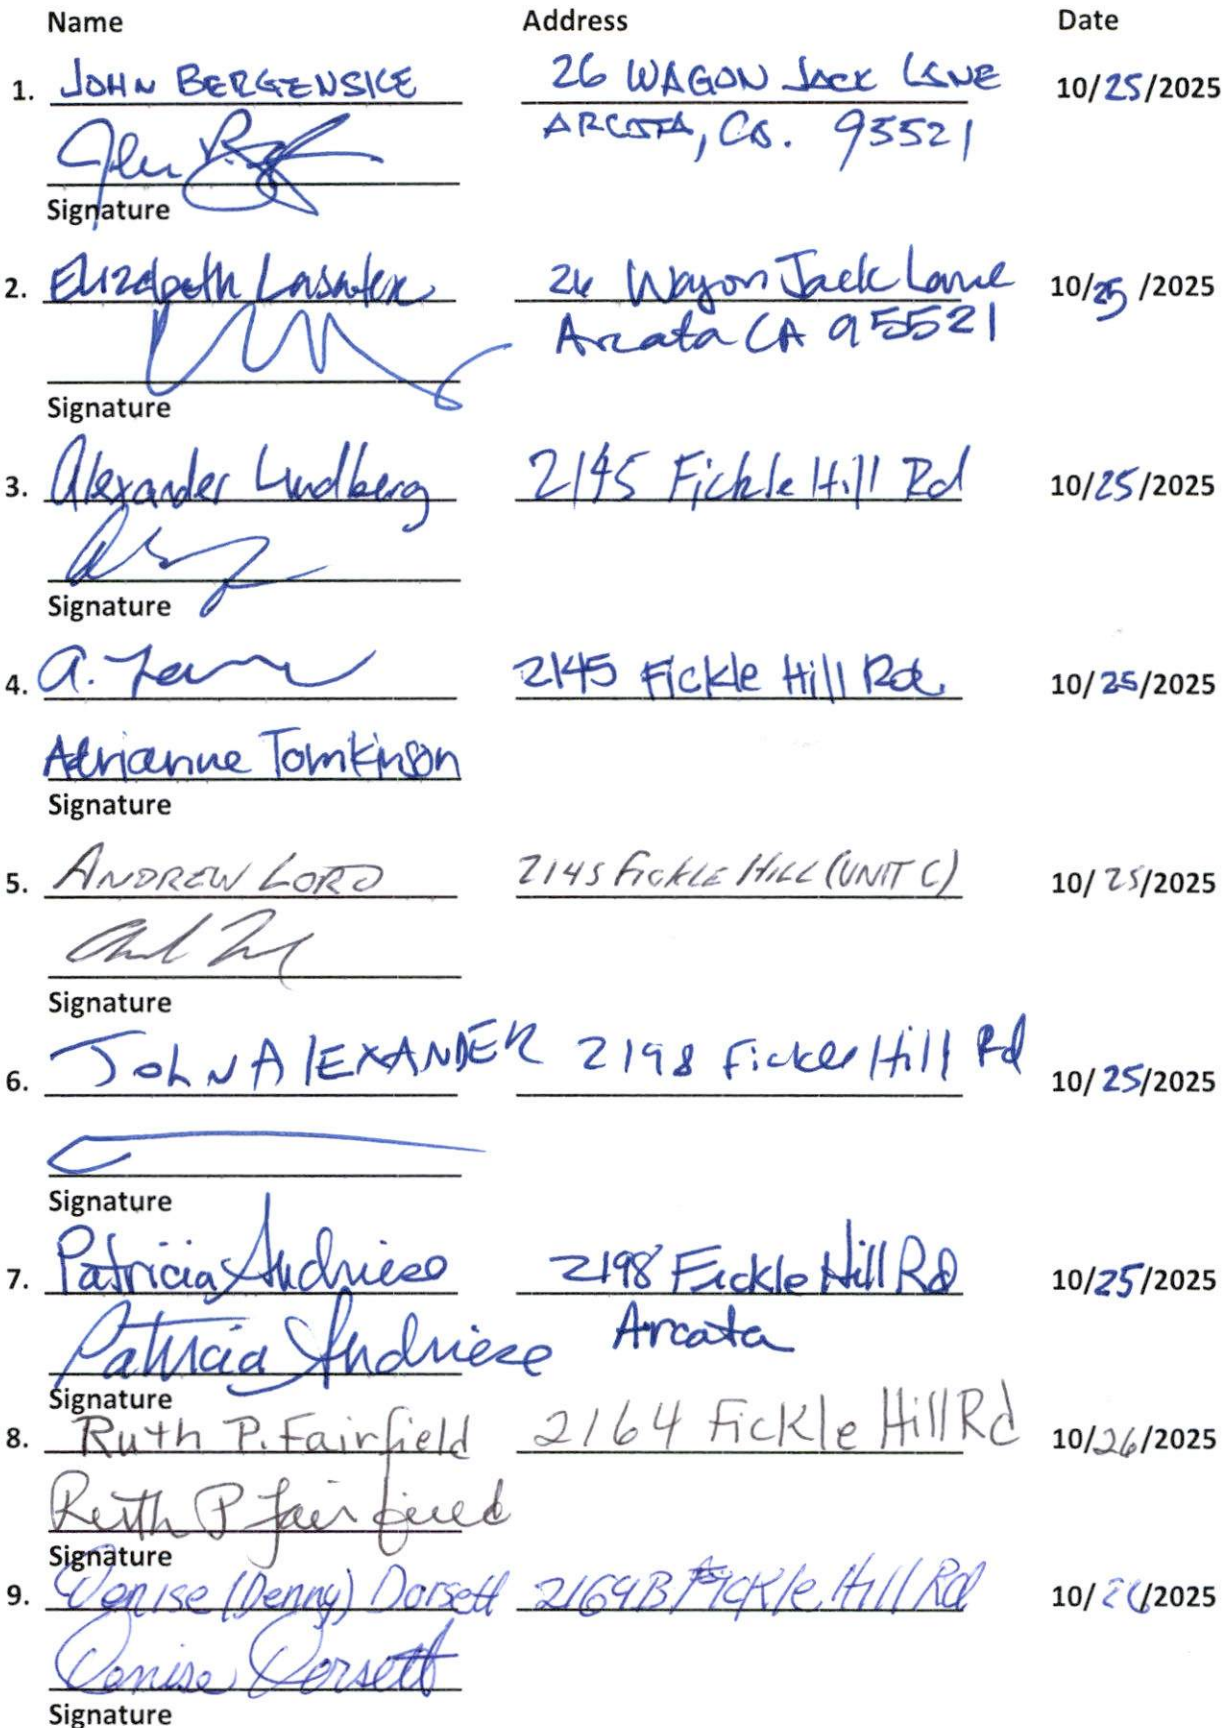 Name Address Date
1. JOHN BERGENSKE 26 WAGON JACK LANE 10/25/2025
ARCATA, CA. 95521
Signature
2. Elizabeth Lasater 26 Wagon Jack Lane 10/25/2025
Arcata CA 95521
Signature
3. Alexander Lundberg 2145 Fickle Hill Rd 10/25/2025
Signature
4. A. 2145 Fickle Hill Rd. 10/25/2025
Adrianne Tomkinson
Signature
5. ANDREW LORD 2145 FICKLE HILL (UNIT C) 10/25/2025
Signature
6. JOHN AlEXANDER 2198 Fickle Hill Rd 10/25/2025
Signature
7. Patricia Andriese 2198 Fickle Hill Rd 10/25/2025
Arcata
Patricia Andriese
Signature
8. Ruth P. Fairfield 2164 Fickle Hill Rd 10/26/2025
Ruth P Fairfield
Signature
9. Denise (Denny) Dorsett 2164B Fickle Hill Rd 10/26/2025
Denise Dorsett
Signature